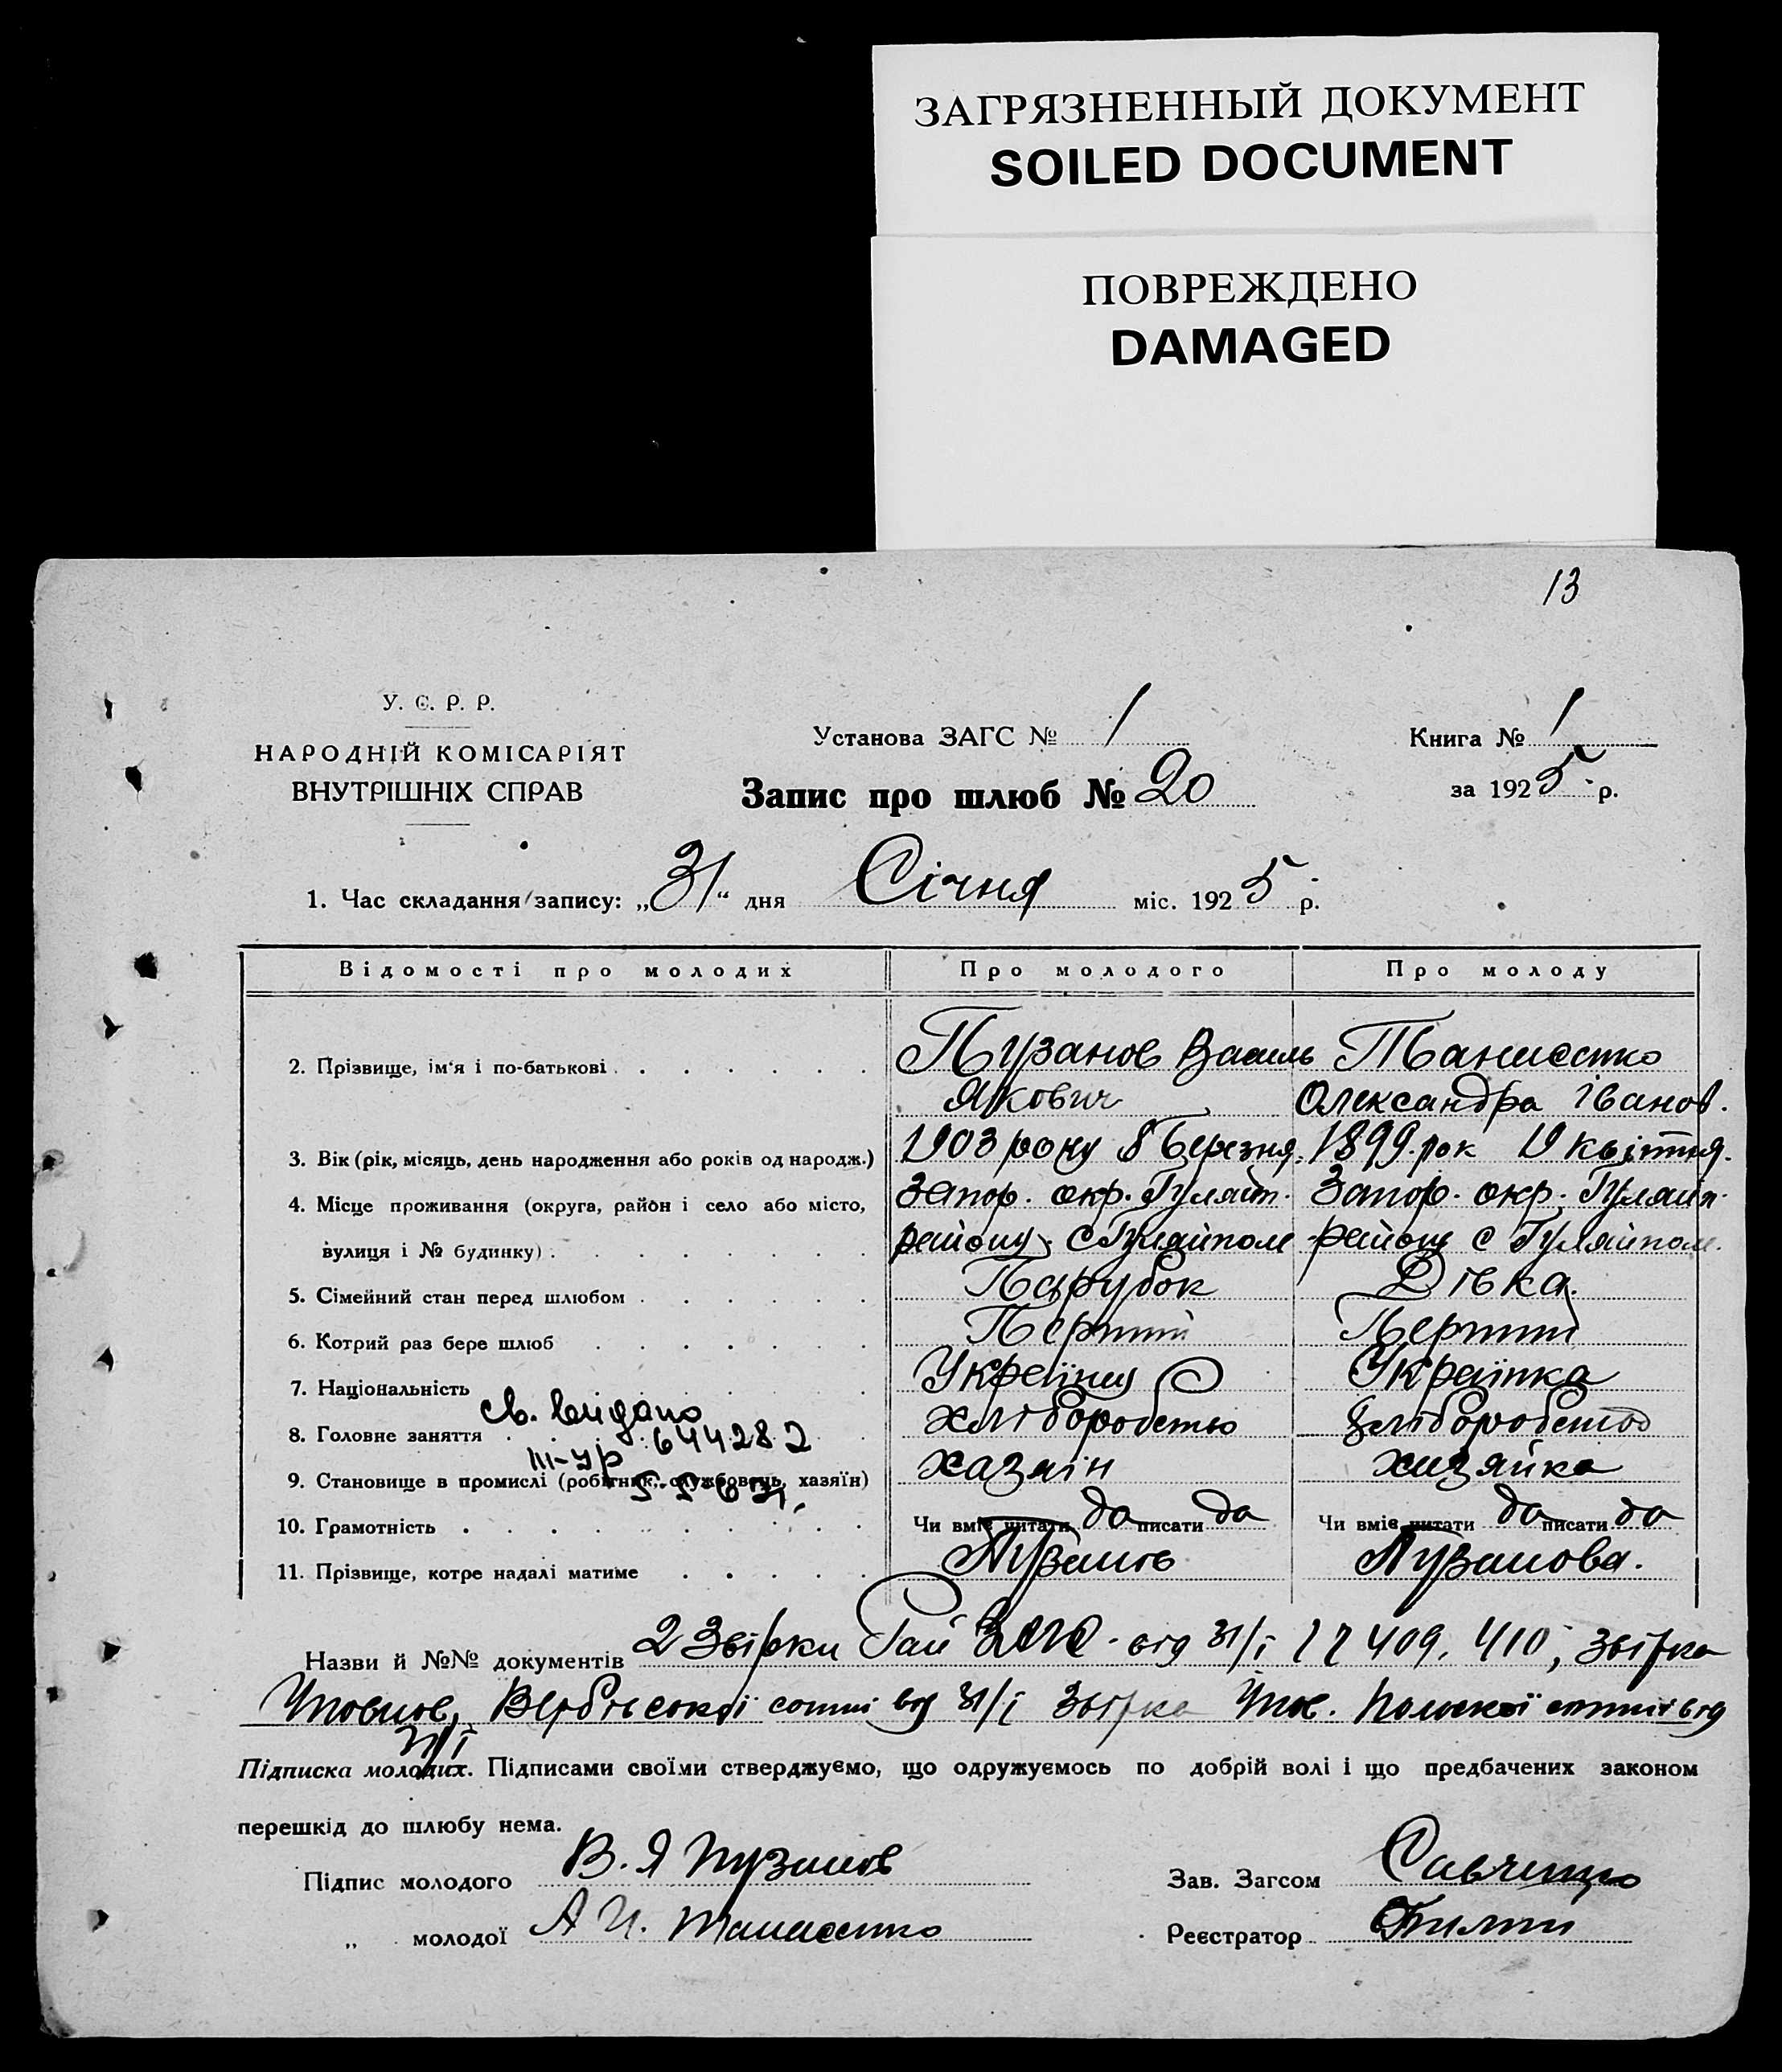 ЗАГРЯЗНЕННЫЙ ДОКУМЕНТ
SOILED DOCUMENT
ПОВРЕЖДЕНО
DAMAGED
13
У. С. Р. Р.
НАРОДНІЙ КОМІСАРІЯТ
ВНУТРІШНІХ СПРАВ
Установа ЗАГС № 1
Запис про шлюб № 20
Книга № 1
за 1925 р.
1. Час складання запису: „31“ дня Січня міс. 1925 р.
Відомості про молодих Про молодого Про молоду
2. Прізвище, ім'я і по-батькові Пузанов Василь
Якович
Олександра Іванов.
3. Вік (рік, місяць, день народження або років од народж.) 1903 року 8 Березня 1899 рок 19 квітня.
4. Місце проживання (округа, район і село або місто, Запор. окр. Гуляйп. Запор. окр. Гуляйп.
вулиця і № будинку) району с Гуляйполе району с Гуляйполе.
5. Сімейний стан перед шлюбом Парубок Дівка.
6. Котрий раз бере шлюб Перший Перший
7. Національність Українец Українка
св. видано
8. Головне заняття хліборобство хліборобство
III-УР 644282
9. Становище в промислі (робітник, службовець, хазяїн) хазяін хазяйка
10. Грамотність Чи вміє читати да писати да Чи вміє читати да писати да
11. Прізвище, котре надалі матиме Пузанов Пузанова.
Назви й №№ документів 2 Звірки Рай ЗАГС від 31/I 409, 410, звірка
сотні від 31/I Звірка сотні від
31/I
Підписка молодих. Підписами своїми стверджуємо, що одружуємось по добрій волі і що предбачених законом
перешкід до шлюбу нема.
Підпис молодого В. Я Пузанов
Зав. Загсом Савченко
„ молодої А И.
Реєстратор